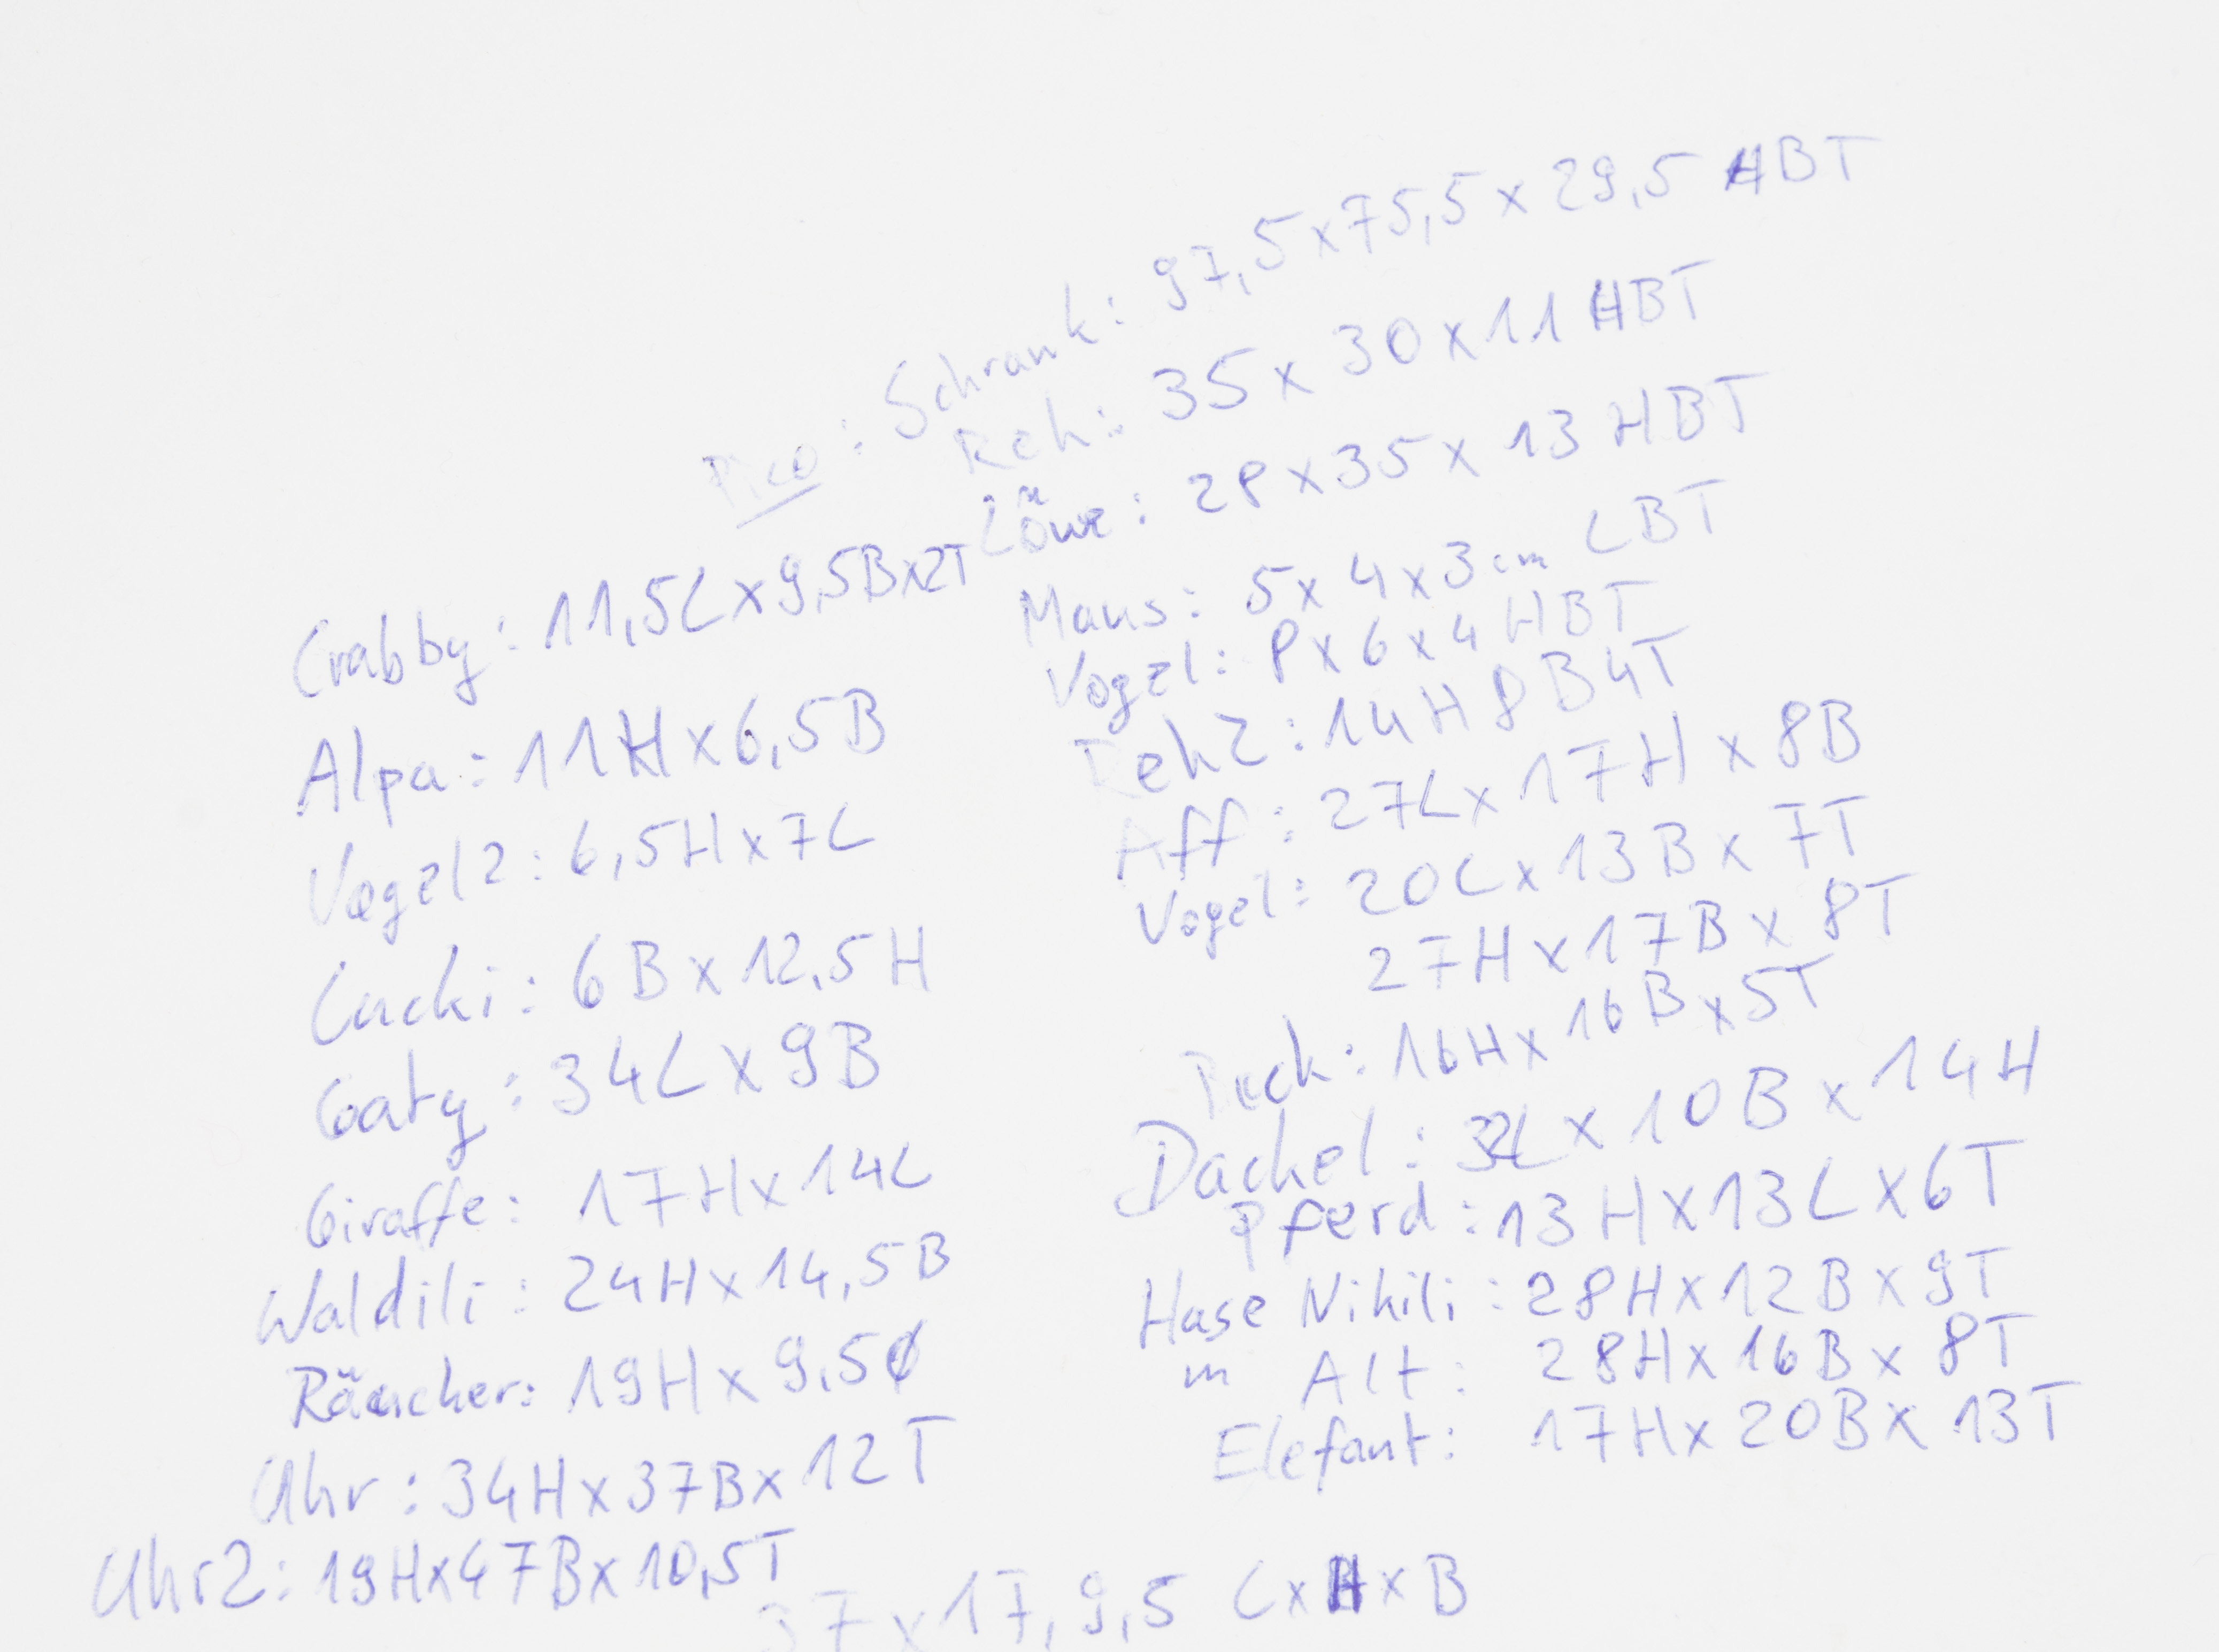 Pico: Schrank: 97,5x75,5x29,5 HBT
Reh: 35x30x11 HBT
Löwe: 28x35x13 HBT
Maus: 5x4x3cm LBT
Vogel: 8x6x4 HBT
Reh2: 14H 8B4T
Aff: 27Lx17Hx8B
Vogel: 20Lx13Bx7T
27Hx17Bx8T
16Hx16Bx5T
Dackel: 32Lx10Bx14H
Pferd: 13Hx13Lx6T
Hase Nikili: 28Hx12Bx9T
m Alt: 28Hx16Bx8T
Elefant: 17Hx20Bx13T
Crabby: 11,5Lx9,5Bx2T
Alpa: 11Hx6,5B
Vogel2: 6,5Hx7L
Lucki: 6Bx12,5H
Gaty: 34Lx9B
Giraffe: 17Hx14L
Waldili: 24Hx14,5B
Räucher: 19Hx9,5Ø
Uhr: 34Hx37Bx12T
Uhr2: 19Hx47Bx10,5T
37x17,9,5 LxHxB